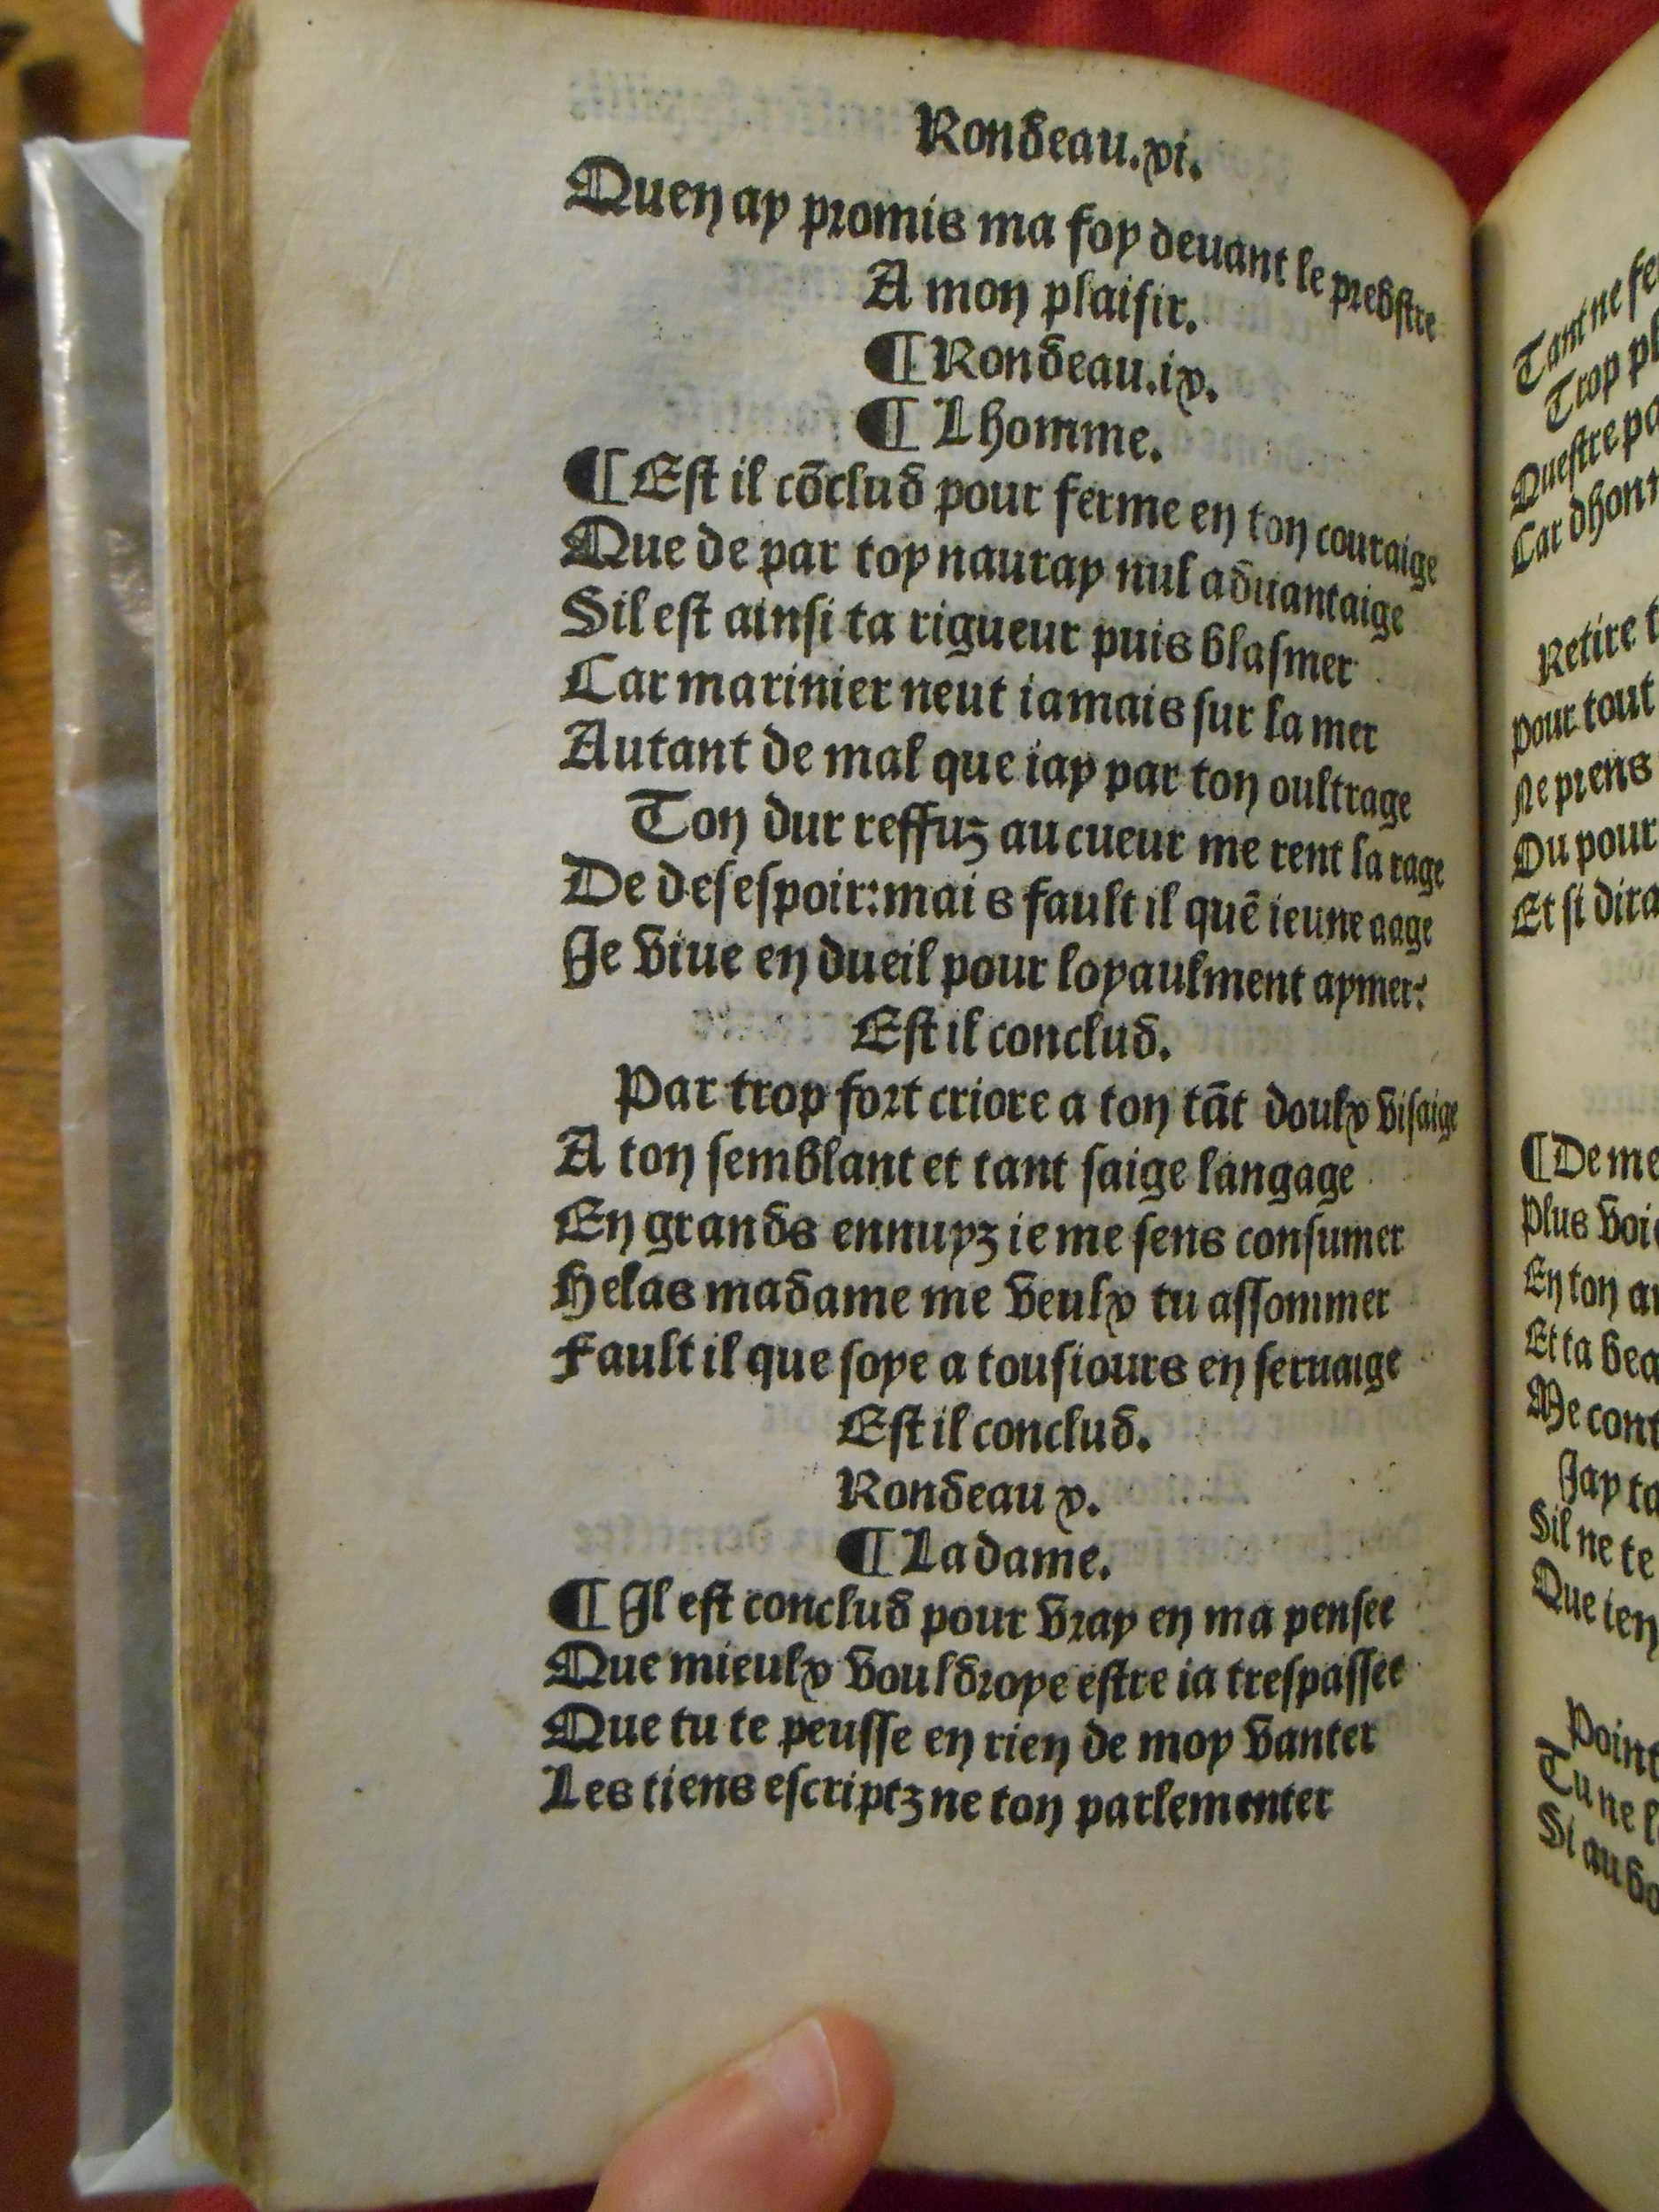 Rondeau.xi.
Quen ay promis ma foy deuant le prebstre
A mon plaisir.
¶Rondeau.ix.
¶Lhomme.
¶Est il cōclud pour ferme en ton couraige
Que de par toy nauray nul aduantaige
Sil est ainsi ta rigueur puis blasmer
Car marinier neut iamais sur la mer
Autant de mal que iay par ton oultrage
Ton dur reffuz au cueur me rent la rage
De desespoir:mais fault il quē ieune aage
Je viue en dueil pour loyaulment aymer:
Est il conclud.
Par trop fort criore a ton tāt doulx visaige
A ton semblant et tant saige langage
En grands ennuyz ie me sens consumer
Helas madame me veulx tu assommer
Fault il que soye a tousiours en seruaige
Est il conclud.
Rondeau x.
¶La dame.
¶Il est conclud pour vray en ma pensee
Que mieulx vouldroye estre ia trespassee
Que tu te peusse en rien de moy vanter
Les tiens escriptz ne ton parlementer
Tant ne
Trop
Questre
Car
Retire
pour tout
Ne prens
Ou pour
Et si
¶De
Plus
En ton
Et ta
Me
Jay
Sil ne te
Que ien
Point
Tu ne
Si au